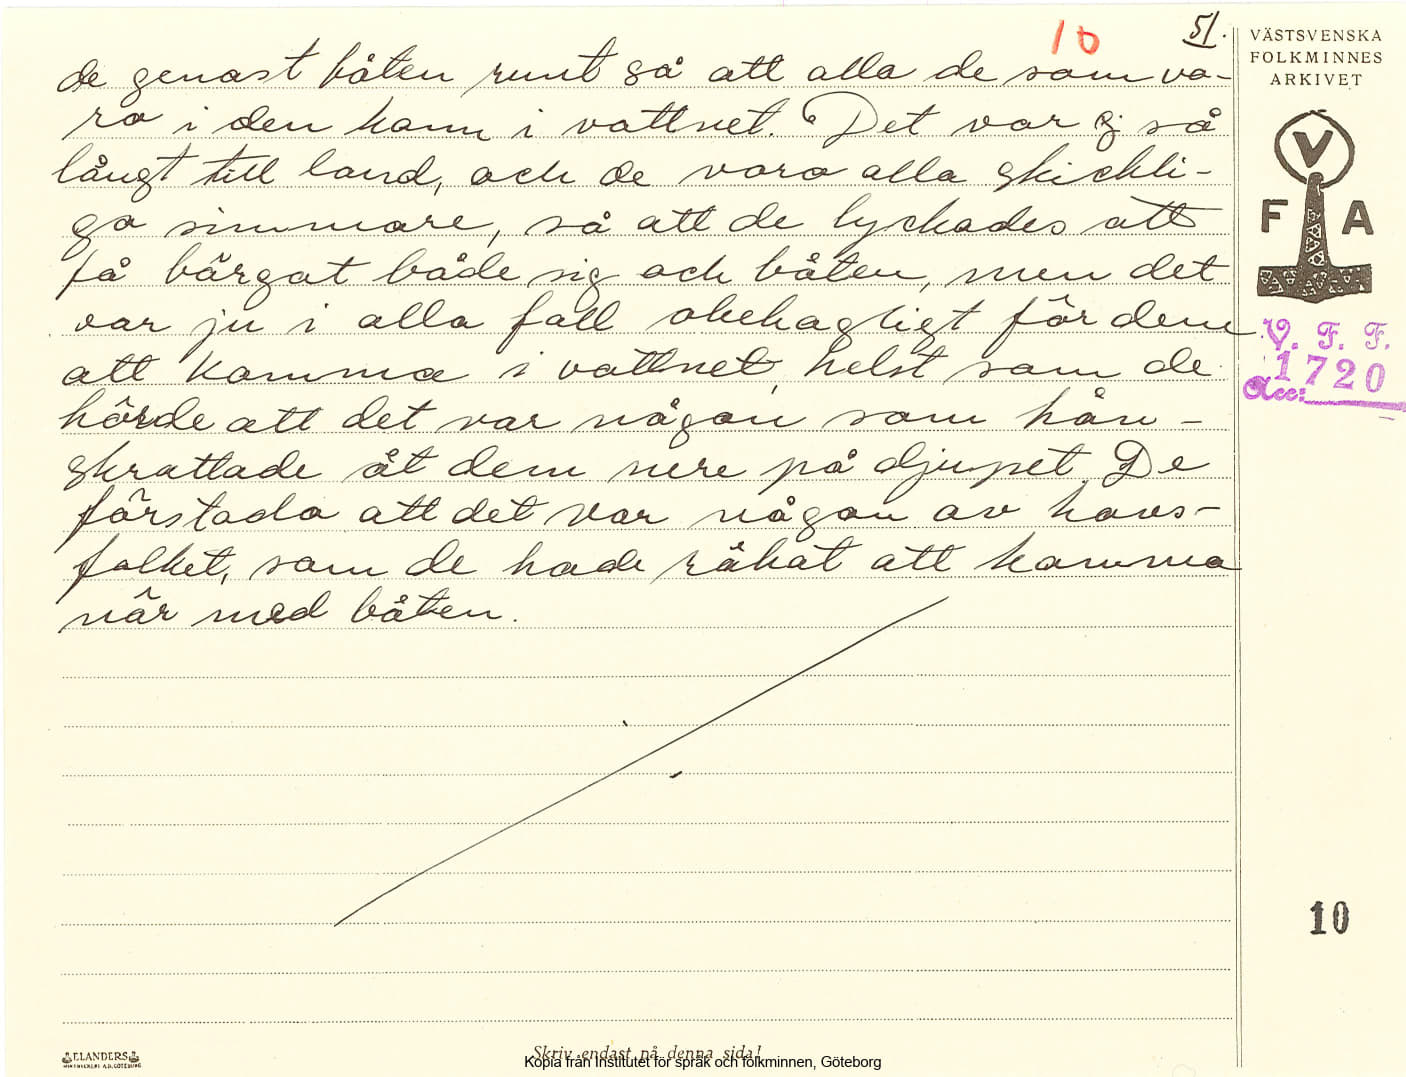 10
51.
VÄSTSVENSKA
FOLKMINNES
ARKIVET
de genast båten runt så att alla de som va-
ro i den kom i vattnet. Det var ej så
långt till land, och de voro alla skickli-
ga simmare, så att de lyckades att
få bärgat både sig och båten, men det
var ju i alla fall obehagligt för dem
att komma i vattnet, helst som de
hörde att det var någon som hån-
skrattade åt dem nere på djupet. De
förstodo att det var någon av havs-
folket, som de hade råkat att komma
när med båten.
V
F A
V. F. F.
1720
Acc:
10
ELANDERS
Skriv endast på denna sida!
Kopia från Institutet för språk och folkminnen, Göteborg